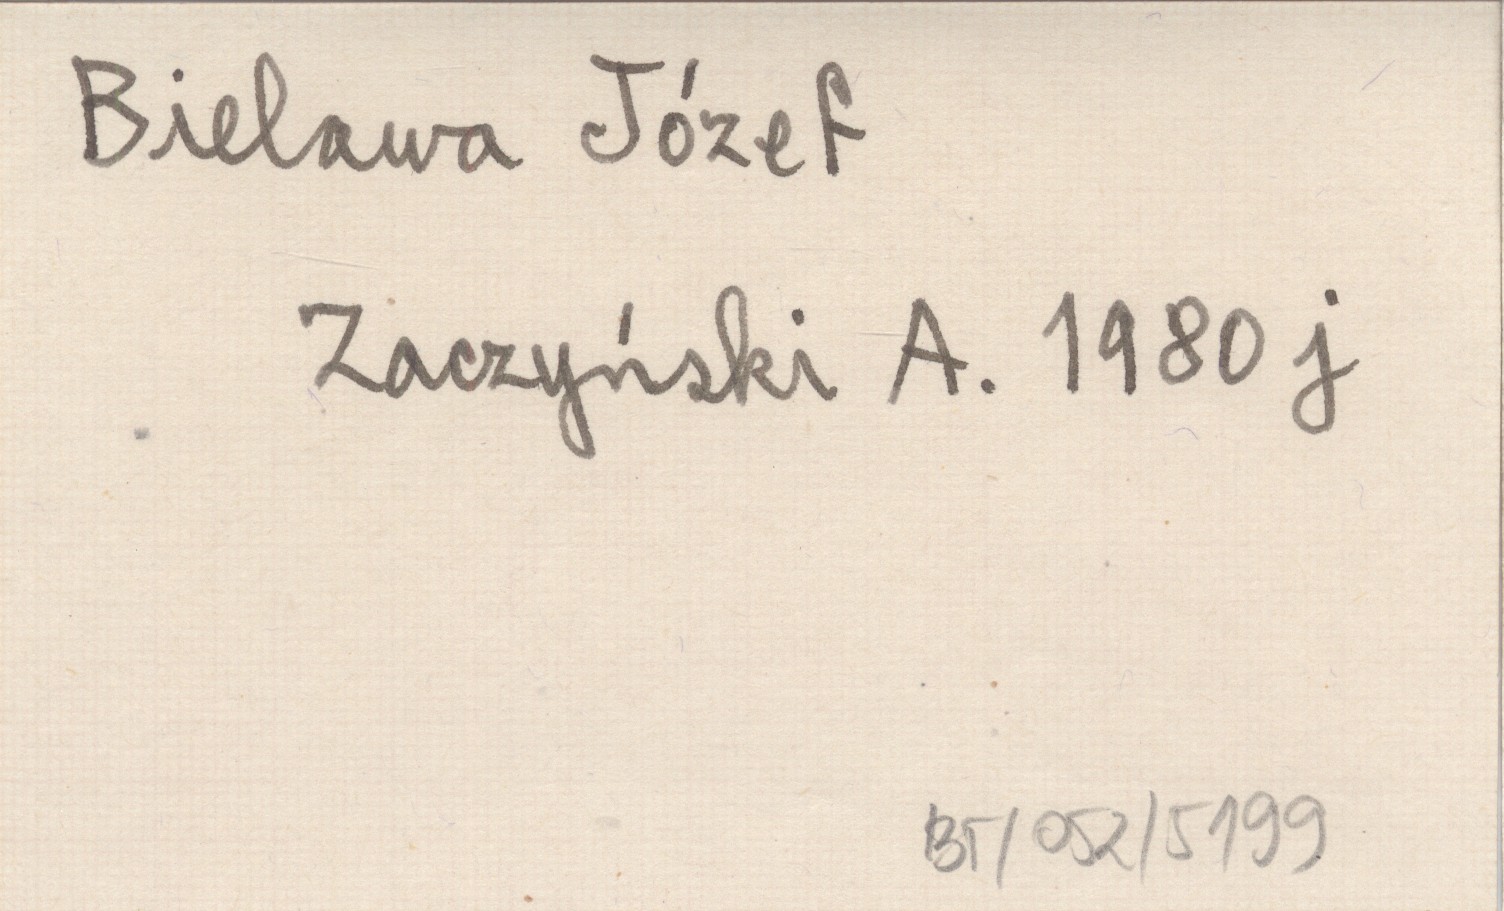 Bielawa Józef
Zaczyński A. 1980 j
BT/052/5199